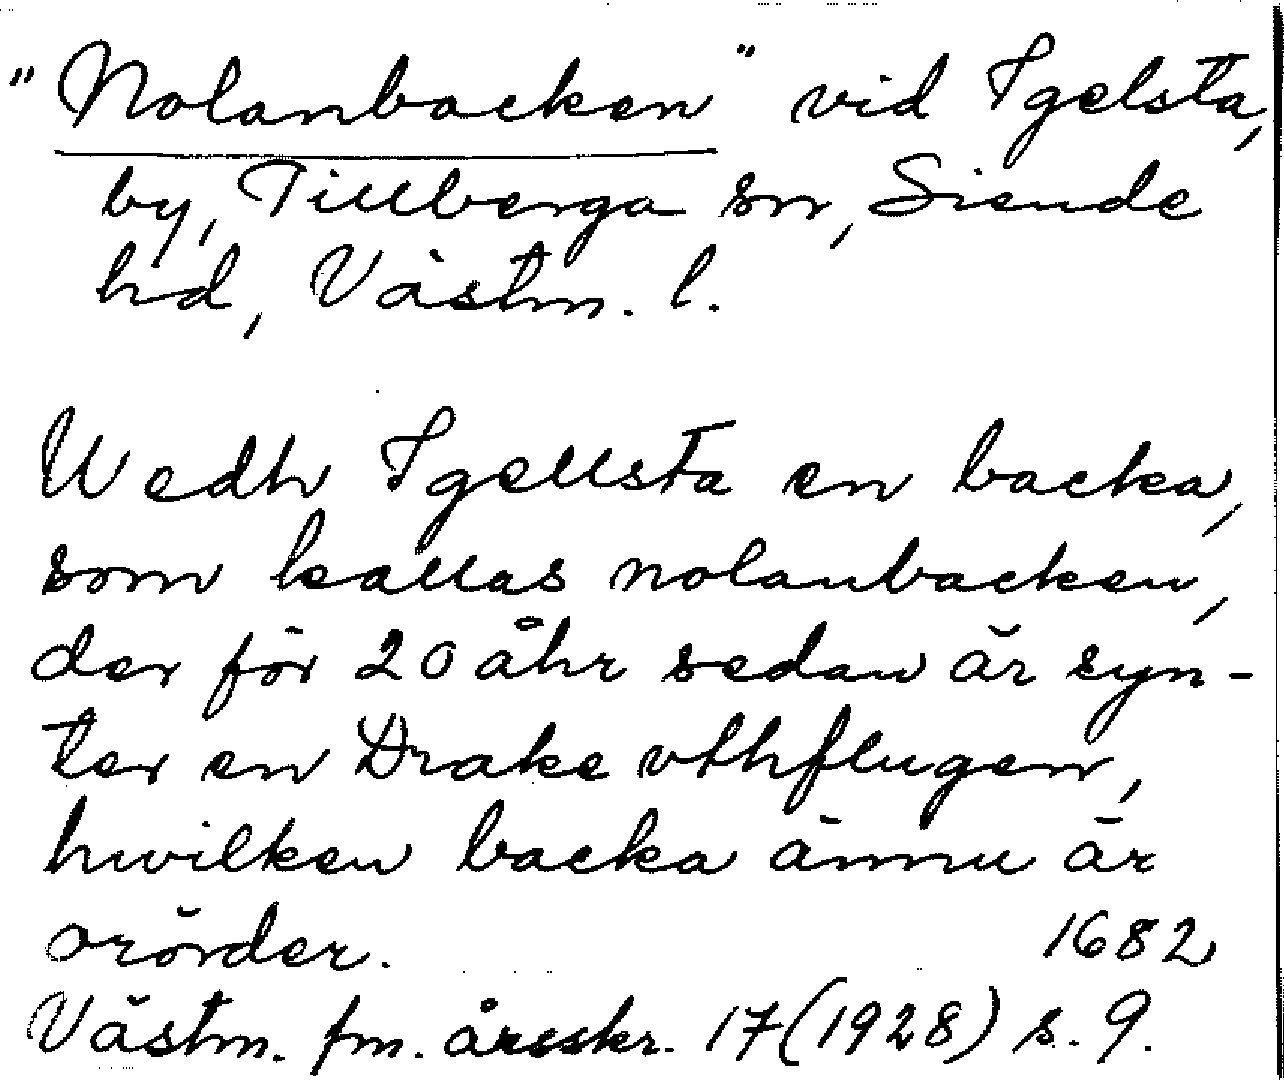 "Nolanbacken" vid Igelsta,
by, Tillberga sn, Siende
hd, Västm. l.
Wedh Igellsta en backa,
som kallas nolanbacken,
der för 20 åhr sedan är syn-
ter en Drake vthflugen,
hwilken backa ännu är
orörder. 1682
Västm. fm. årsskr. 17 (1928) s. 9.